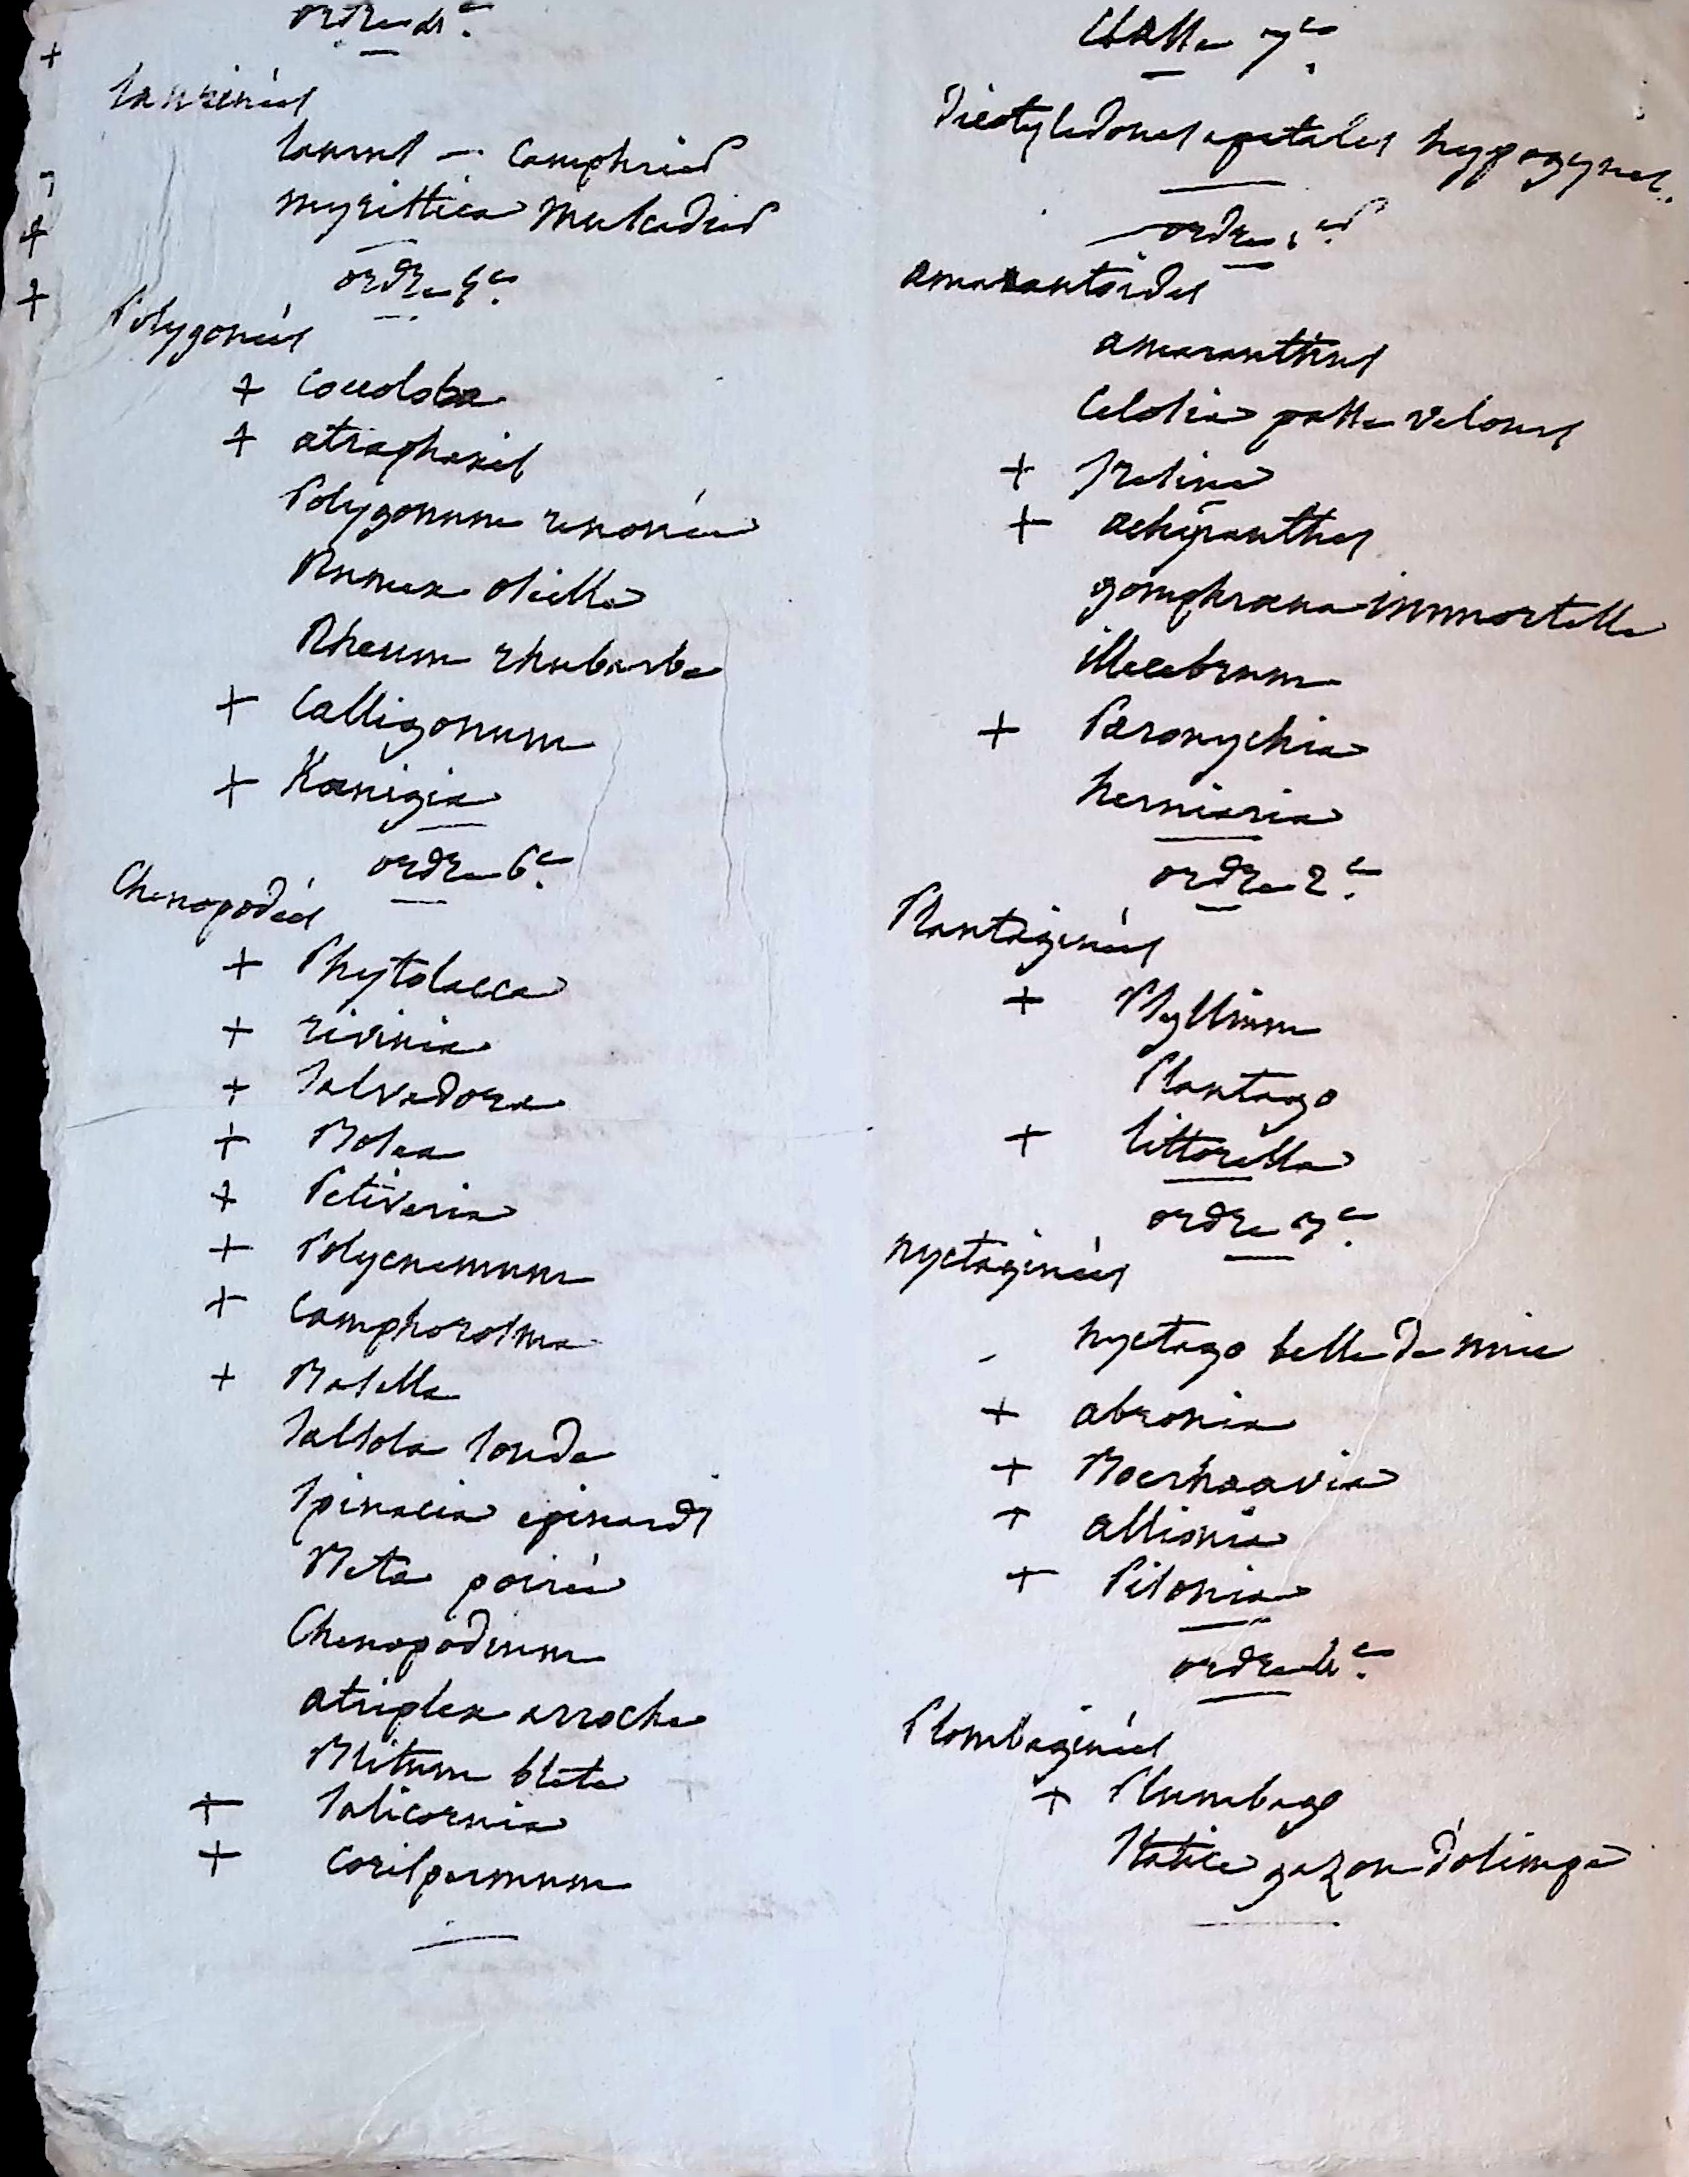 ordre 4e.
+
Laurinées
laurus — camphrier
myristica muscadier
ordre 5e.
+
+
Polygonées
+ coccoloba
+ atraphaxis
Polygonum renouée
Rumex oseille
Rheum rhubarbe
+ calligonum
+ Kœnigia
ordre 6e.
Chenopodées
+ Phytolacca
+ rivinia
+ salvadora
+ Bosea
+ Petiveria
+ Polycnemum
+ camphorosma
+ Basella
salsola soude
spinacia epinards
Beta poirée
Chenopodium
atriplex arroche
Blitum blete
+ salicornia
+ corispermum
Classe 7e.
Dicotyledones apetales hypogynes.
ordre 1er.
amarantoides
amaranthus
celosia passe velours
+ iresine
+ achyranthes
gomphrœna immortelle
illecebrum
+ Paronychia
herniaria
ordre 2e.
Plantaginées
+ Psyllium
Plantago
+ littorella
ordre 3e.
nyctaginées
- nyctago belle de nuit
+ abronia
+ Boerhaavia
+ allionia
+ Pisonia
ordre 4e.
Plombaginées
+ Plumbago
Statice gazon d'olimpe